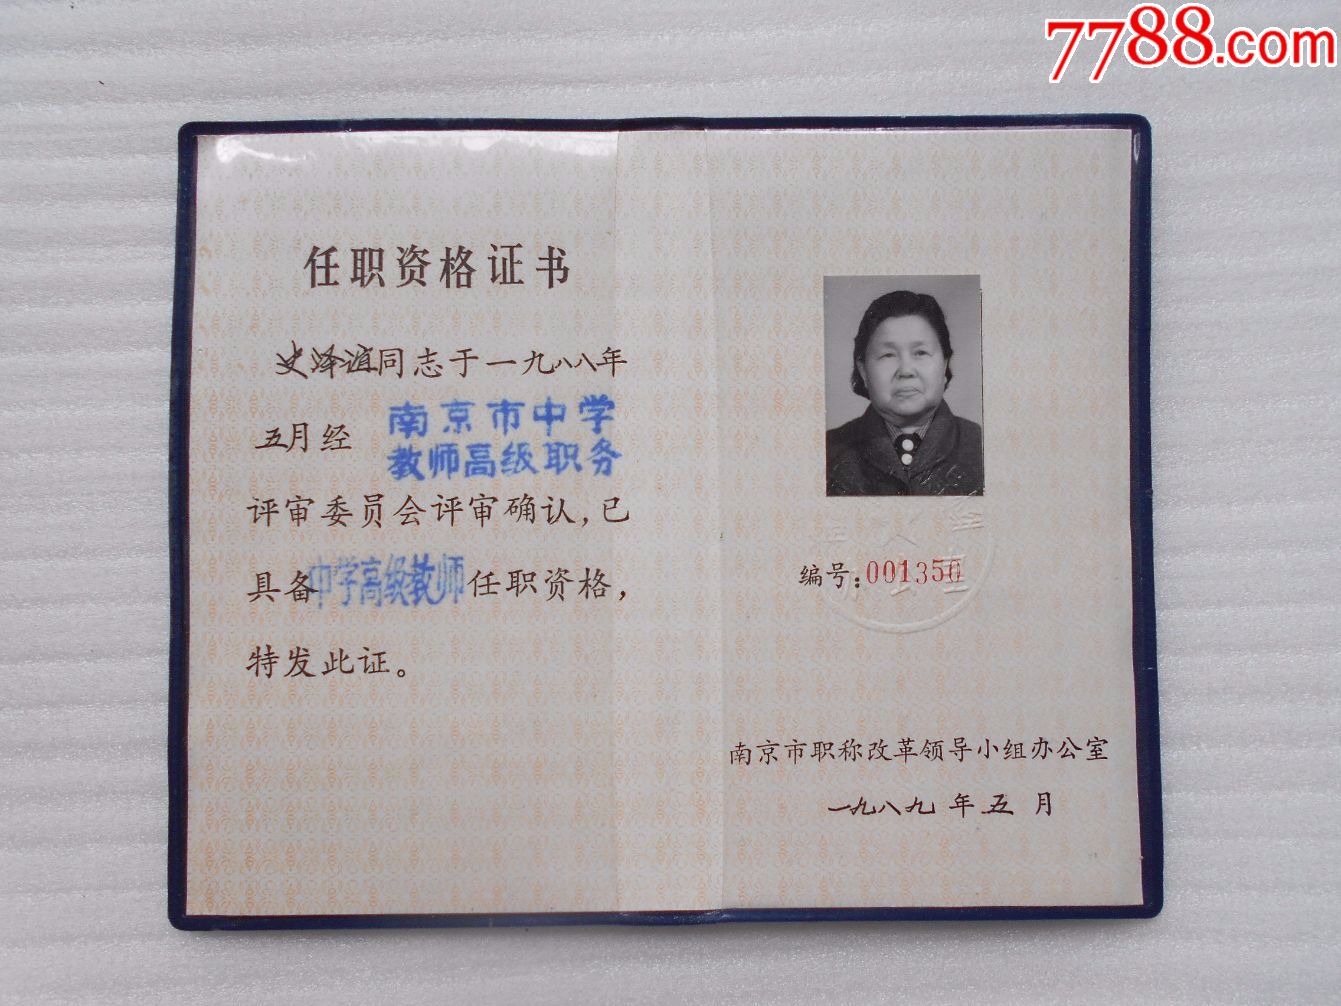 7788.com
任职资格证书
史泽谊同志于一九八八年
五月经 南京市中学
教师高级职务
评审委员会评审确认,已
具备中学高级教师任职资格,
特发此证。
编号:001350
南京市职称改革领导小组办公室
一九八九年五月